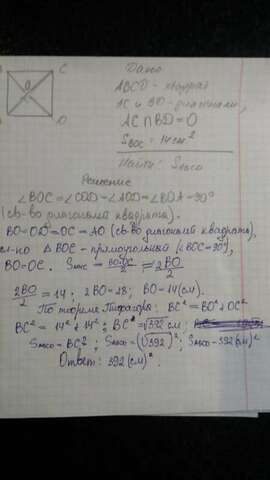 C
O
D
Дано
ABCD - квадрат
AC и BD - диагонали,
AC ∩ BD = O
S BOC = 14 см²
Найти: S ABCD
Решение
∠BOC = ∠COD = ∠AOD = ∠BOA = 90°
(св-во диагоналей квадрата).
BO = OD = OC = AO (св-во диагоналей квадрата),
сл-но △BOC - прямоугольный (∠BOC = 90°),
BO = OC. S BOC = BO·OC/2 = 2BO/2
2BO/2 = 14; 2BO = 28; BO = 14 (см).
По теореме Пифагора: BC² = BO² + OC²
BC² = 14² + 14²; BC = √392 см;
S ABCD = BC²; S ABCD = (√392)²; S ABCD = 392 (см)²
Ответ: 392 (см)².